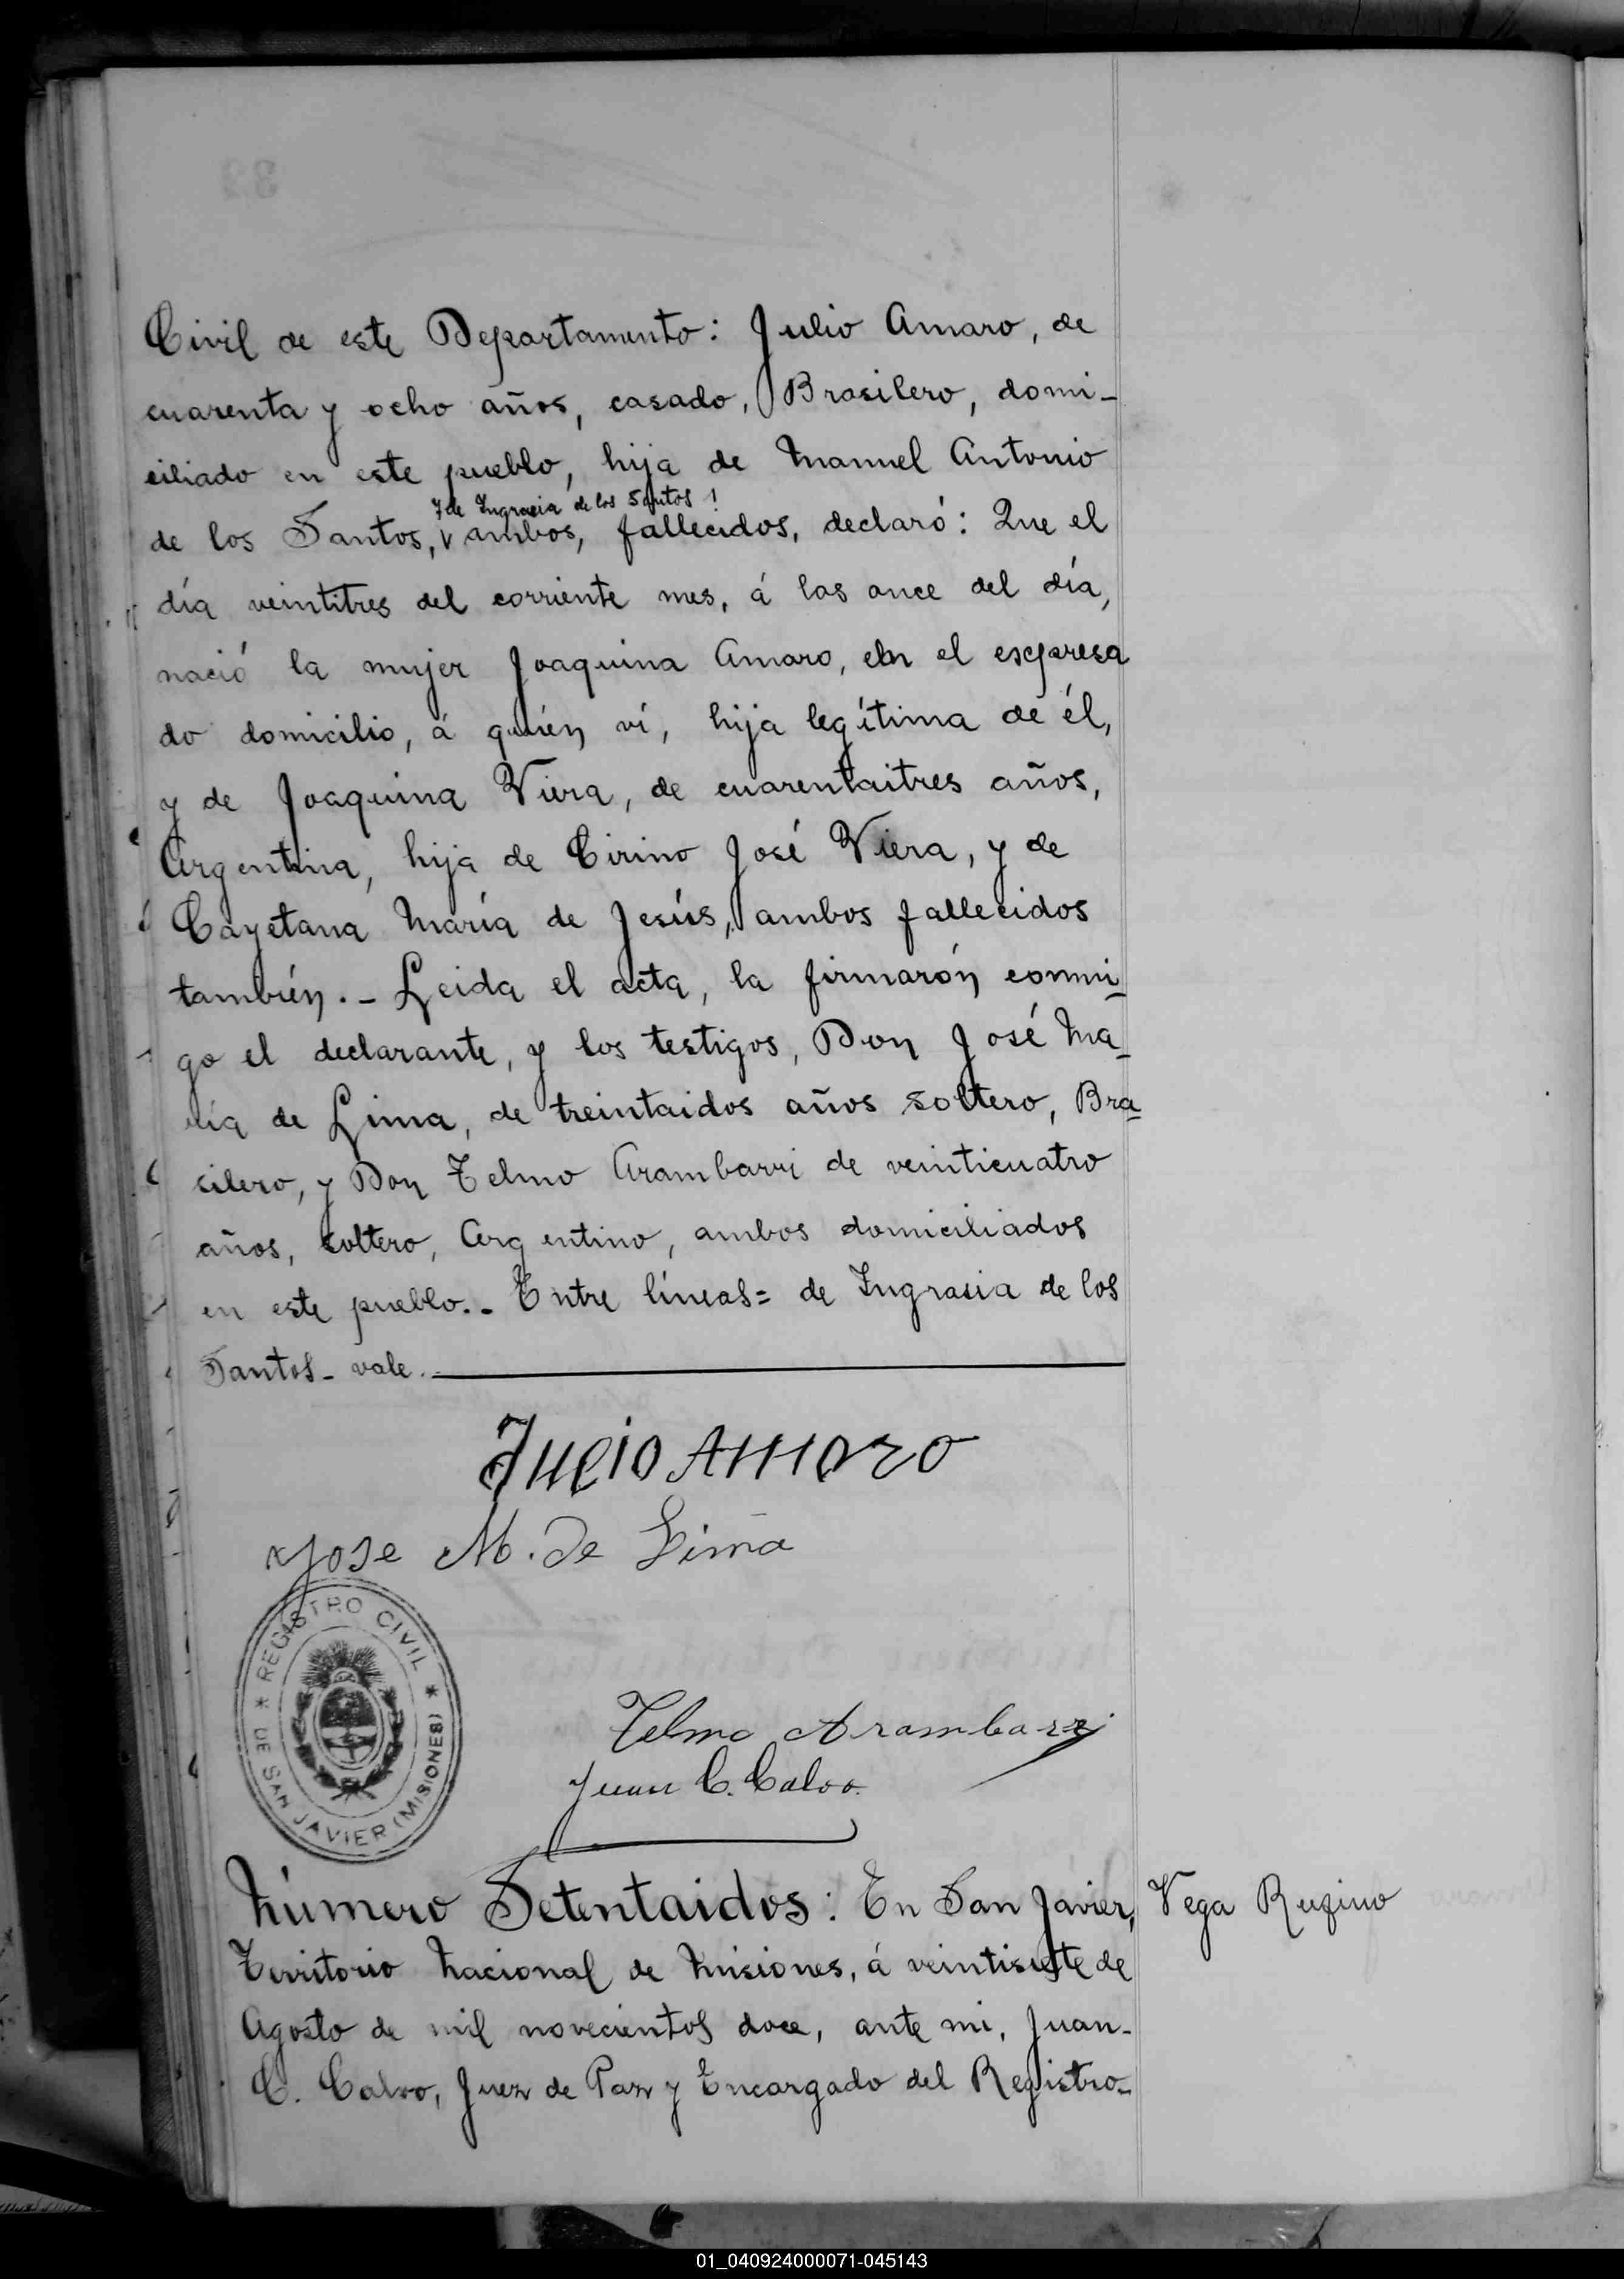 Civil de este Departamento: Julio Amaro, de
cuarenta y ocho años, casado, Brasilero, domi-
ciliado en este pueblo, hija de Manuel Antonio
y de Ingracia de los Santos!
de los Santos, v ambos, fallecidos, declaró: Que el
día veintitres del corriente mes, á las once del día,
nació la mujer Joaquina Amaro, en el espresa
do domicilio, á quién ví, hija legítima de él,
y de Joaquina Viera, de cuarentaitres años,
Argentina, hija de Cirino José Viera, y de
Cayetana María de Jesús, ambos fallecidos
también.- Leida el acta, la firmarón conmi-
go el declarante, y los testigos, Don José Ma-
ría de Lima, de treintaidos años soltero, Bra-
silero, y Don Telmo Arambarri de veinticuatro
años, soltero, Argentino, ambos domiciliados
en este pueblo.- Entre líneas= de Ingrasia de los
Santos- vale.-
Julio Amaro
Jose M. de Lima
REGISTRO CIVIL * DE SAN JAVIER (MISIONES) *
Telmo Arambarri
Juan C. Calvo.
Número Setentaidos: En San Javier,
Vega Rufino
Territorio Nacional de Misiones, á veintisiete de
Agosto de mil novecientos doce, ante mi, Juan-
C. Calvo, Juez de Paz y Encargado del Registro-
01_040924000071-045143